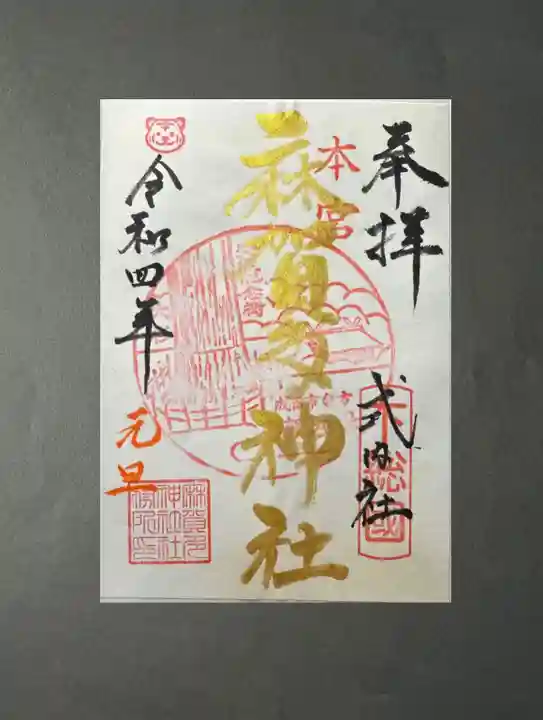 奉拝
式内社
下総國
本宮
麻賀多神社
令和四年
元旦
麻賀多
神社社
務所印